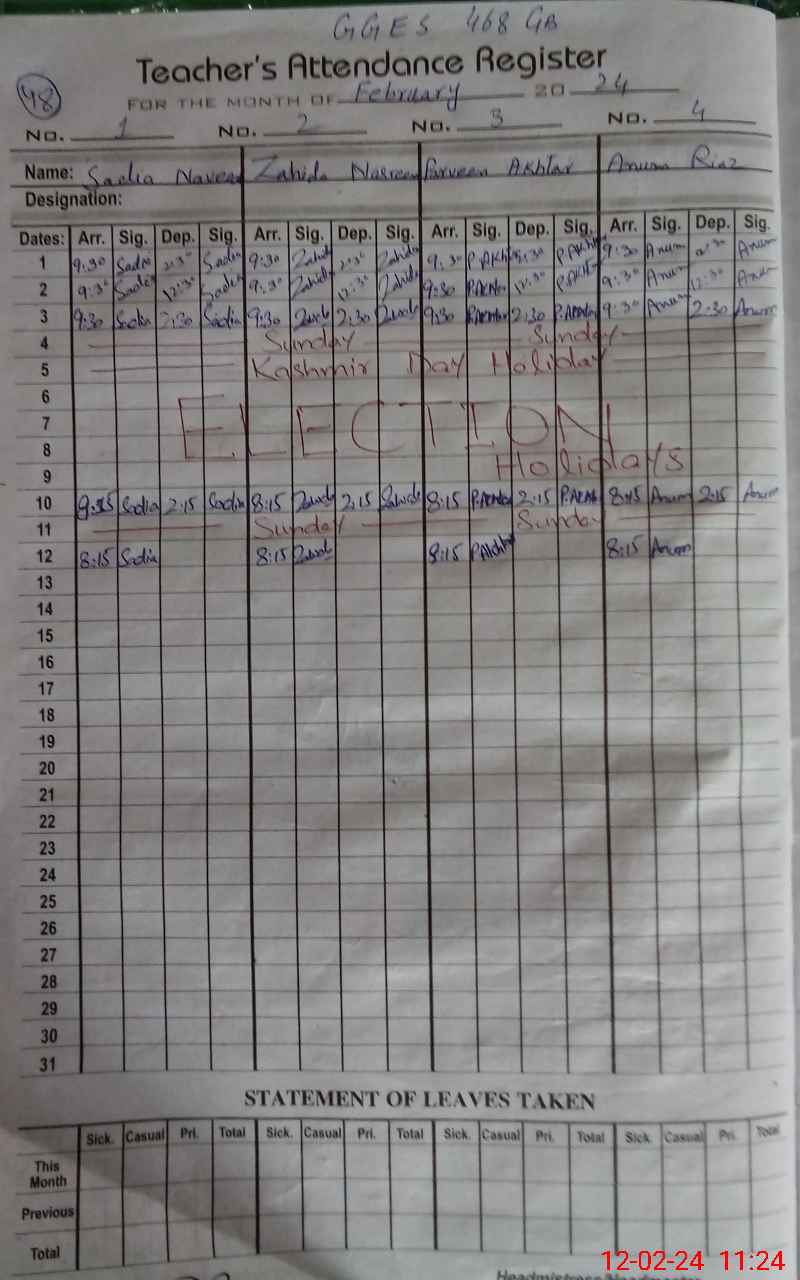 GGES 468 GB
Teacher's Attendance Register
48
FOR THE MONTH OF February 20 24
No. 1 No. 2 No. 3 No. 4
Name: Sadia Naveed Zahida Nasreen Parveen Akhtar Anum Riaz
Designation:
Dates: Arr. Sig. Dep. Sig. Arr. Sig. Dep. Sig. Arr. Sig. Dep. Sig. Arr. Sig. Dep. Sig.
1 9:30 Sadia 2:30 Sadia 9:30 Zahida 2:30 Zahida 9:30 P.Akhtar P.Akhtar 9:30 Anum 2:30 Anum
2 9:30 Sadia 12:30 Sadia 9:30 Zahida 12:30 Zahida 9:30 P.Akhtar 12:30 P.Akhtar 9:30 Anum 12:30 Anum
3 9:30 Sadia 2:30 Sadia 9:30 2:30 9:30 P.Akhtar 2:30 P.Akhtar 9:30 Anum 2:30 Anum
4 Sunday Sunday
5 Kashmir Day Holiday
6
7 ELECTION
8 Holidays
9
10 Sadia 2:15 Sadia 8:15 2:15 8:15 P.Akhtar 2:15 P.Akhtar 8:15 Anum 2:15 Anum
11 Sunday Sunday
12 8:15 Sadia 8:15 8:15 P.Akhtar 8:15 Anum
13
14
15
16
17
18
19
20
21
22
23
24
25
26
27
28
29
30
31
STATEMENT OF LEAVES TAKEN
Sick. Casual Pri. Total Sick. Casual Pri. Total Sick. Casual Pri. Total Sick. Casual Pri. Total
This
Month
Previous
Total
12-02-24 11:24